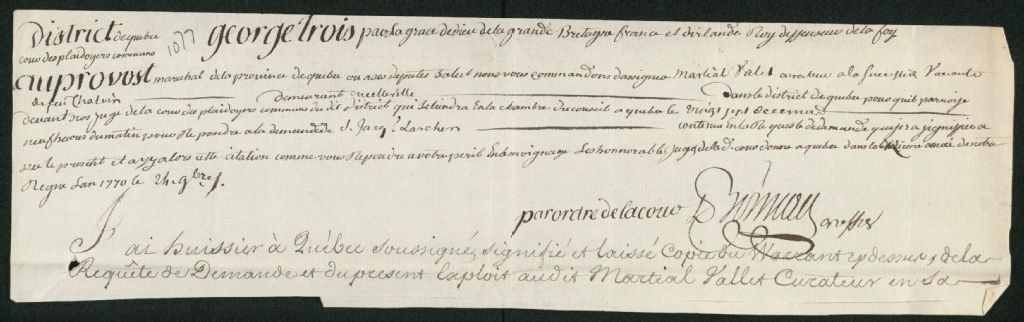 District de quebec 1077 george trois par la grace de dieu de la grande Bretagne france et dirlande Roy deffenseur de la foy
cour des plaidoyers communs
au provost marechal de la province de quebec ou a ses deputes salut nous vous commandons dassigner Martial Valet curateur a la succession Vacante
de feu Chalvin demeurant en cette ville dans le district de quebec pour quil paroisse
devant nos juge de la cour des plaidoyers communs du dit district qui se tiendra En la chambre du conseil a quebec le Vingt sept decembre
neuf heures du matin pour Repondre a la demande de J. Jacq.s Larcher contenu En la Requeste de demande qui sera signifiée a
vec le present et ayez alors cette citation comme vous Repondrez a votre peril En temoignage Les honnorables juges de la d. cour donné a quebec dans la dixieme année de notre
Regne Lan 1770 le
par ordre de la cour greffier
J'ai huissier à Québec soussigné, signifié et laissé Copie du Warrant cy dessus, de la
Requête de Demande et du présent Exploit audit Martial Vallet Curateur en sa